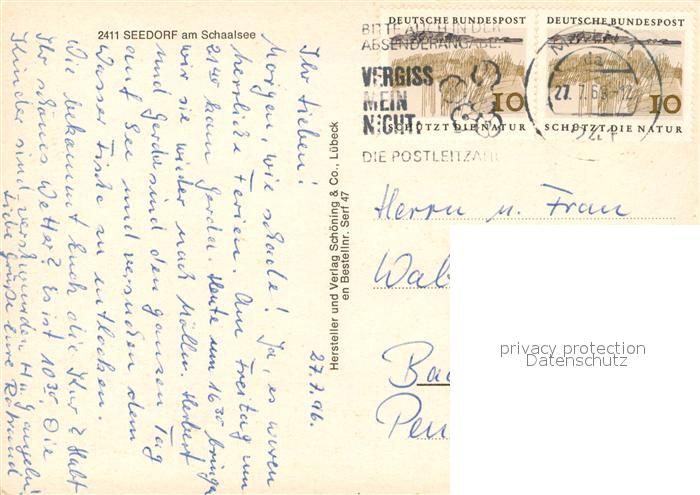 2411 SEEDORF am Schaalsee
BITTE AUCH IN DER
ABSENDERANGABE:
VERGISS
MEIN
NICHT
DIE POSTLEITZAHL
DEUTSCHE BUNDESPOST
10
SCHÜTZT DIE NATUR
DEUTSCHE BUNDESPOST
10
SCHÜTZT DIE NATUR
27.7.69-12
Hersteller und Verlag Schöning & Co., Lübeck
en Bestellnr. Serf 47
27.7.96.
Ihr Lieben!
Morgen, wie schade! Ja, es waren
herrliche Ferien. Am Freitag um
21 40 kam Gerda. Heute um 16 30 bringen
wir sie wieder nach Mölln. Herbert
und Gerda sind den ganzen Tag
auf See und versuchen dem
Wasser Fische zu entlocken.
Wie bekommt Euch die Kur? Habt
Ihr schönes Wetter? Es ist 10 30. Die
Kinder sind verschwunden H u. G angeln.
Liebe Grüße Eure
Herrn u. Frau
Wal
Ba
Pen
privacy protection
Datenschutz